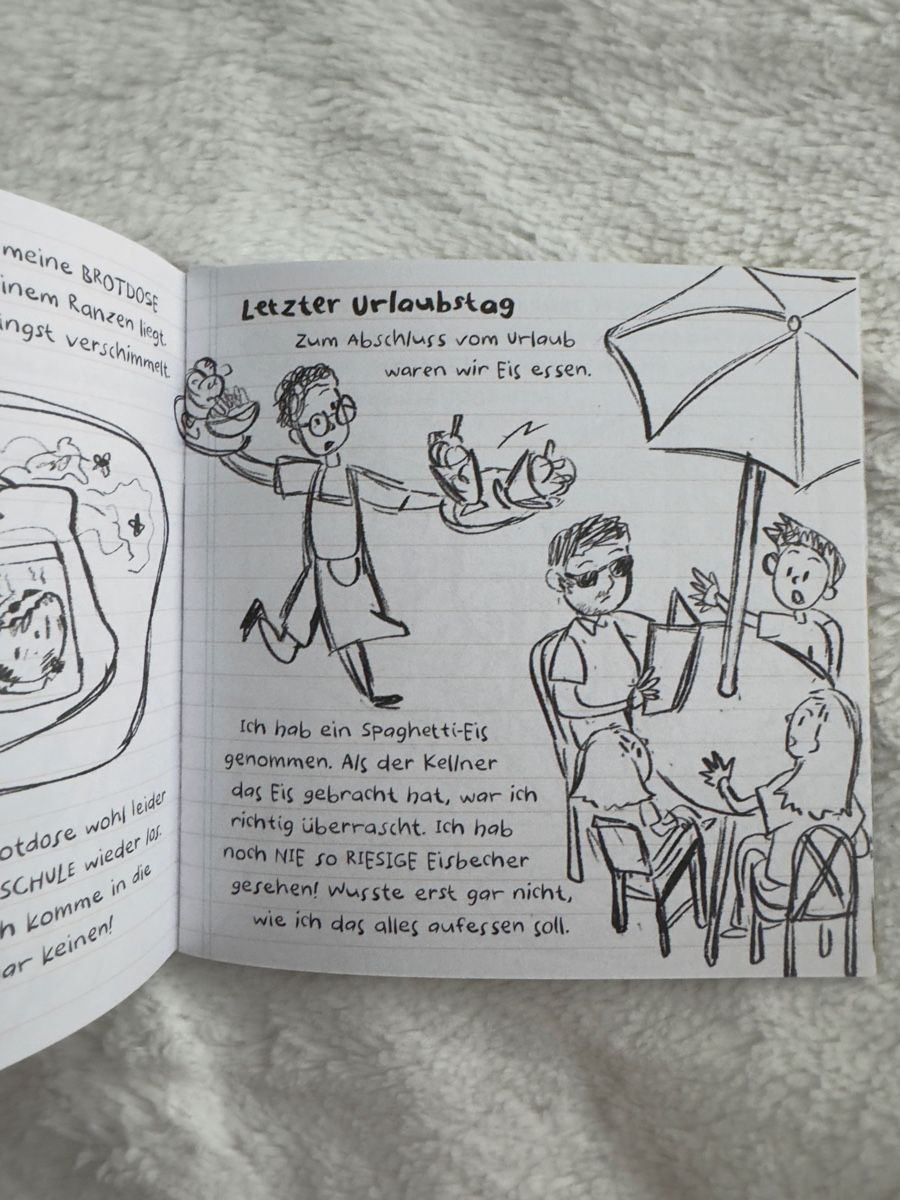 meine BROTDOSE
inem Ranzen liegt.
ängst verschimmelt.
otdose wohl leider
SCHULE wieder los.
h komme in die
ar keinen!
Letzter Urlaubstag
Zum Abschluss vom Urlaub
waren wir Eis essen.
Ich hab ein Spaghetti-Eis
genommen. Als der Kellner
das Eis gebracht hat, war ich
richtig überrascht. Ich hab
noch NIE so RIESIGE Eisbecher
gesehen! Wusste erst gar nicht,
wie ich das alles aufessen soll.